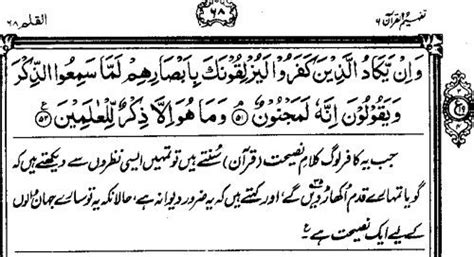 تفہیم القرآن ۶
۶۸
القلم ۶۸
وَاِنْ يَّكَادُ الَّذِيْنَ كَفَرُوْا لَيُزْلِقُوْنَكَ بِاَبْصَارِهِمْ لَمَّا سَمِعُوا الذِّكْرَ
وَيَقُوْلُوْنَ اِنَّهٗ لَمَجْنُوْنٌ ۝۵۱ وَمَا هُوَ اِلَّا ذِكْرٌ لِّلْعٰلَمِيْنَ ۝۵۲
جب یہ کافر لوگ کلامِ نصیحت (قرآن) سُنتے ہیں تو تمہیں ایسی نظروں سے دیکھتے ہیں کہ
گویا تمہارے قدم اُکھاڑ دیں گے، اور کہتے ہیں کہ یہ ضرور دیوانہ ہے، حالانکہ یہ تو سارے جہان والوں
کے لیے ایک نصیحت ہے ع